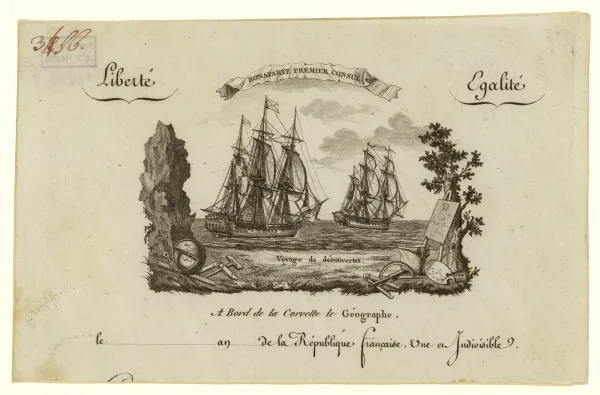 3456.
Liberté
BONAPARTE PREMIER CONSUL
Egalité
Voyage de découvertes.
A Bord de la Corvette le Géographe.
le an de la République française, Une et Indivisible.